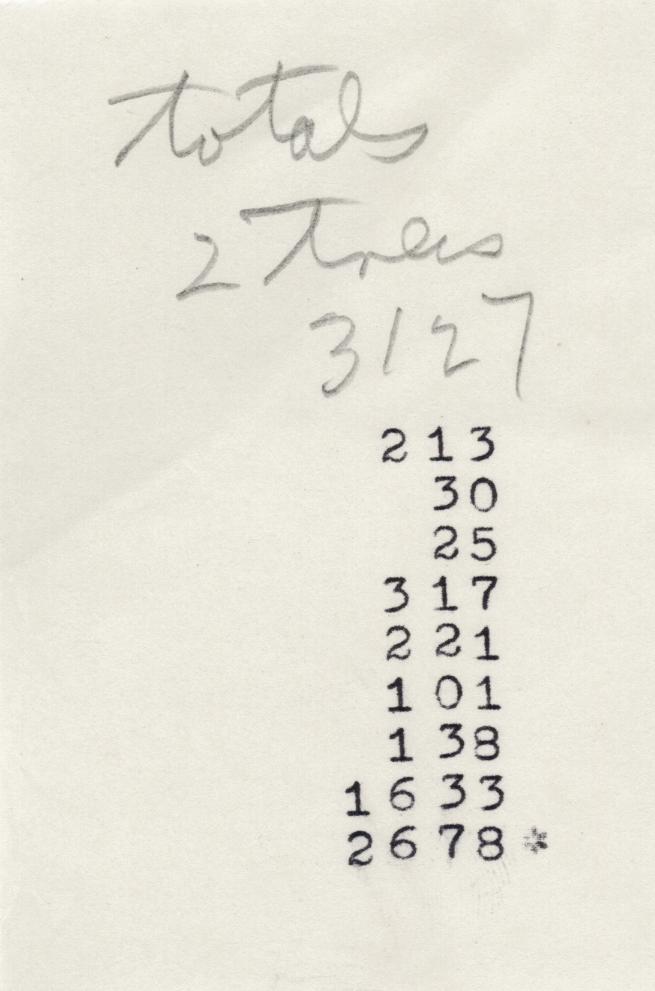 totals
2 Trees
3127
2 13
30
25
3 17
2 21
1 01
1 38
16 33
26 78 *